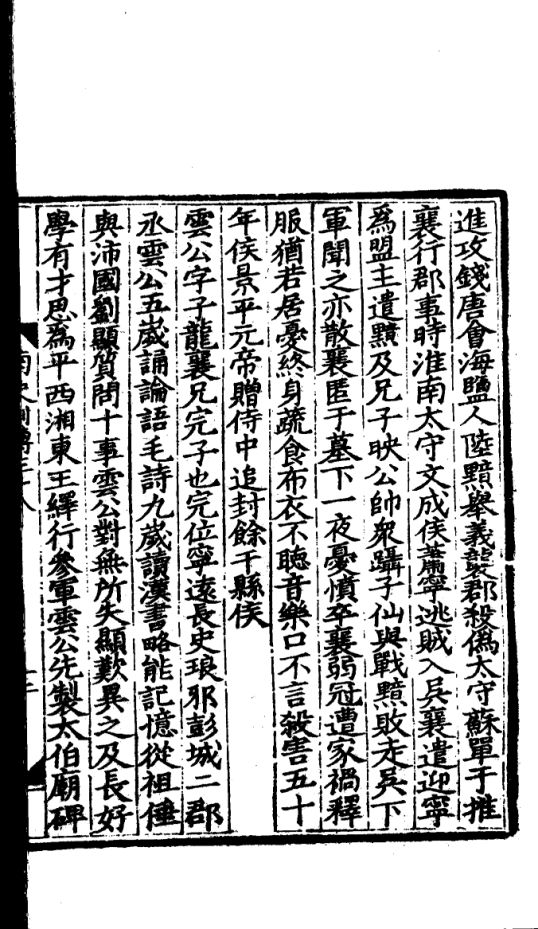 進攻錢唐會海鹽人陸黯舉義襲郡殺僞太守蘇單于推
襄行郡事時淮南太守文成侯蕭寧逃賊入吳襄遣迎寧
爲盟主遣黯及兄子映公帥衆躡子仙與戰黯敗走吳下
軍聞之亦散襄匿于墓下一夜憂憤卒襄弱冠遭家禍釋
服猶若居憂終身蔬食布衣不聽音樂口不言殺害五十
年侯景平元帝贈侍中追封餘干縣侯
雲公字子龍襄兄完子也完位寧遠長史琅邪彭城二郡
丞雲公五歲誦論語毛詩九歲讀漢書略能記憶從祖倕
與沛國劉顯質問十事雲公對無所失顯歎異之及長好
學有才思爲平西湘東王繹行參軍雲公先製太伯廟碑
南史列傳三十八